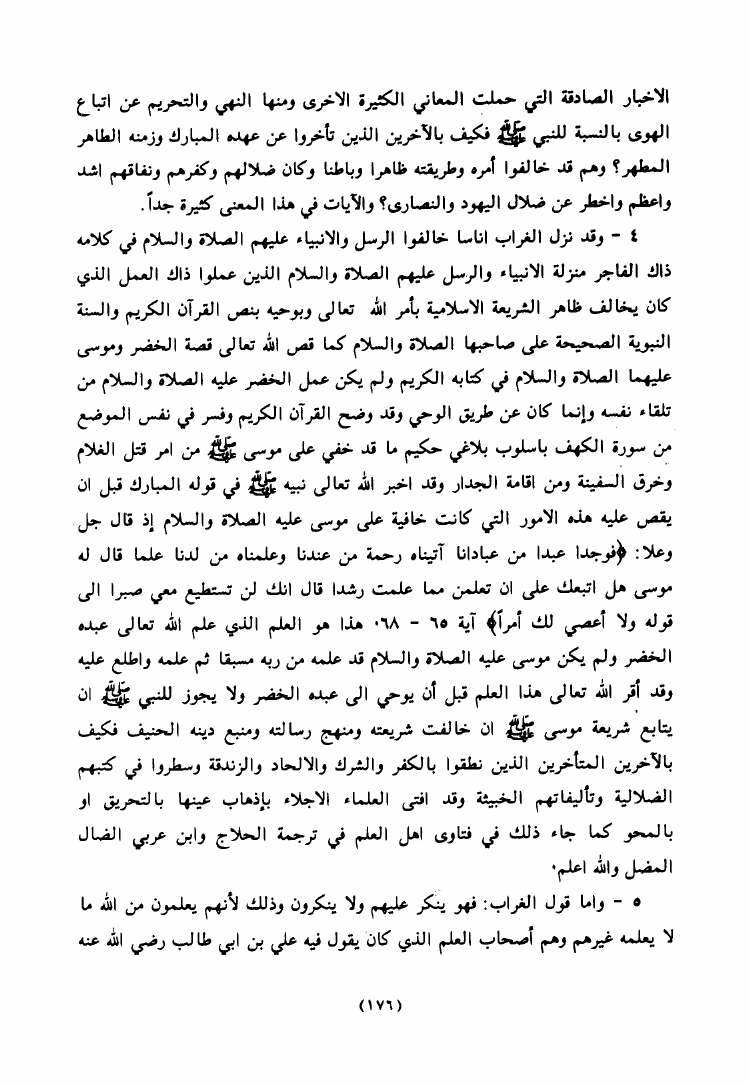 الاخبار الصادقة التي حملت المعاني الكثيرة الاخرى ومنها النهي والتحريم عن اتباع
الهوى بالنسبة للنبي ﷺ فكيف بالآخرين الذين تأخروا عن عهده المبارك وزمنه الطاهر
المطهر؟ وهم قد خالفوا أمره وطريقته ظاهرا وباطنا وكان ضلالهم وكفرهم ونفاقهم اشد
واعظم واخطر عن ضلال اليهود والنصارى؟ والآيات في هذا المعنى كثيرة جداً.
٤ - وقد نزل الغراب اناسا خالفوا الرسل والانبياء عليهم الصلاة والسلام في كلامه
ذاك الفاجر منزلة الانبياء والرسل عليهم الصلاة والسلام الذين عملوا ذاك العمل الذي
كان يخالف ظاهر الشريعة الاسلامية بأمر الله تعالى وبوحيه بنص القرآن الكريم والسنة
النبوية الصحيحة على صاحبها الصلاة والسلام كما قص الله تعالى قصة الخضر وموسى
عليهما الصلاة والسلام في كتابه الكريم ولم يكن عمل الخضر عليه الصلاة والسلام من
تلقاء نفسه وإنما كان عن طريق الوحي وقد وضح القرآن الكريم وفسر في نفس الموضع
من سورة الكهف باسلوب بلاغي حكيم ما قد خفي على موسى ﷺ من امر قتل الغلام
وخرق السفينة ومن اقامة الجدار وقد اخبر الله تعالى نبيه ﷺ في قوله المبارك قبل ان
يقص عليه هذه الامور التي كانت خافية على موسى عليه الصلاة والسلام إذ قال جل
وعلا: ﴿فوجدا عبدا من عبادانا آتيناه رحمة من عندنا وعلمناه من لدنا علما قال له
موسى هل اتبعك على ان تعلمن مما علمت رشدا قال انك لن تستطيع معي صبرا الى
قوله ولا أعصي لك أمراً﴾ آية ٦٥ - ٠٦٨ هذا هو العلم الذي علم الله تعالى عبده
الخضر ولم يكن موسى عليه الصلاة والسلام قد علمه من ربه مسبقا ثم علمه واطلع عليه
وقد أقر الله تعالى هذا العلم قبل أن يوحي الى عبده الخضر ولا يجوز للنبي ﷺ ان
يتابع شريعة موسى ﷺ ان خالفت شريعته ومنهج رسالته ومنبع دينه الحنيف فكيف
بالآخرين المتأخرين الذين نطقوا بالكفر والشرك والالحاد والزندقة وسطروا في كتبهم
الضلالية وتأليفاتهم الخبيثة وقد افتى العلماء الاجلاء بإذهاب عينها بالتحريق او
بالمحو كما جاء ذلك في فتاوى اهل العلم في ترجمة الحلاج وابن عربي الضال
المضل والله اعلم٠
٥ - واما قول الغراب: فهو ينكر عليهم ولا ينكرون وذلك لأنهم يعلمون من الله ما
لا يعلمه غيرهم وهم أصحاب العلم الذي كان يقول فيه علي بن ابي طالب رضي الله عنه
(١٧٦)